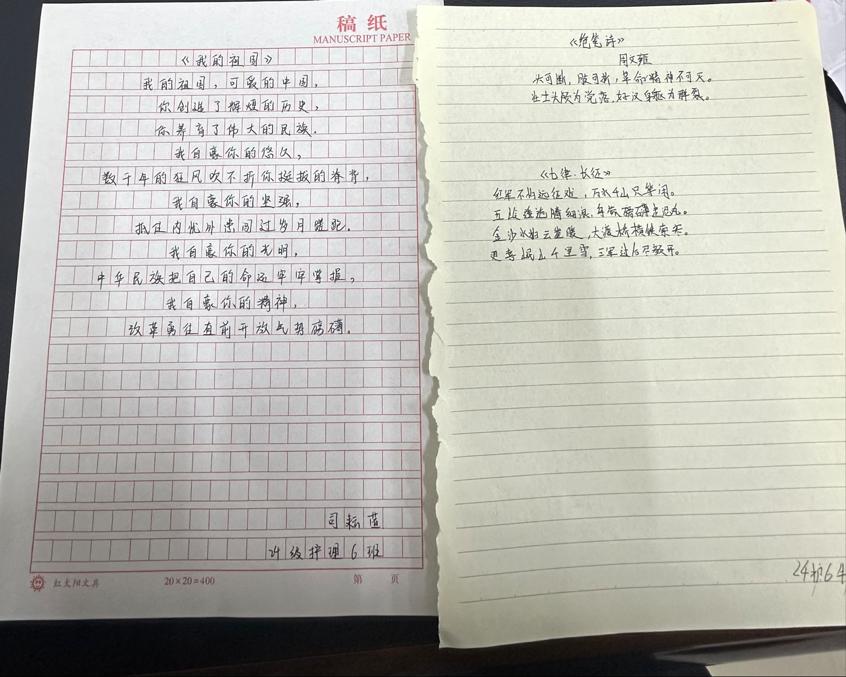 稿纸
MANUSCRIPT PAPER
《我的祖国》
我的祖国，可爱的中国，
你创造了辉煌的历史，
你养育了伟大的民族．
我自豪你的悠久，
数千年的狂风吹不折你挺拔的脊背，
我自豪你的坚强，
抵住内忧外患闯过岁月蹉跎．
我自豪你的光明，
中华民族把自己的命运牢牢掌握，
我自豪你的精神，
改革勇往直前开放气势磅礴．
司耘蓝
24级护理6班
红太阳文具
20×20=400
第 页
《绝笔诗》
周文雍
头可断，肢可折，革命精神不可灭。
壮士头颅为党落，好汉身躯为群裂。
《七律·长征》
红军不怕远征难，万水千山只等闲。
五岭逶迤腾细浪，乌蒙磅礴走泥丸。
金沙水拍云崖暖，大渡桥横铁索寒。
更喜岷山千里雪，三军过后尽开颜。
24护6